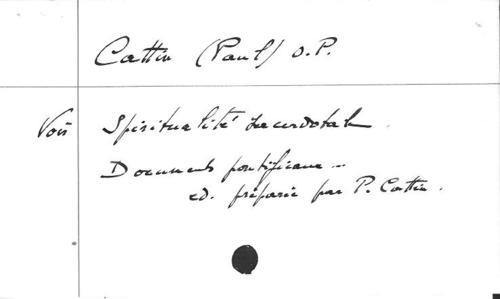 Cattin (Paul) O.P.
Voir Spiritualité sacerdotale
Documents pontificaux ...
ed. préparée par P. Cattin.